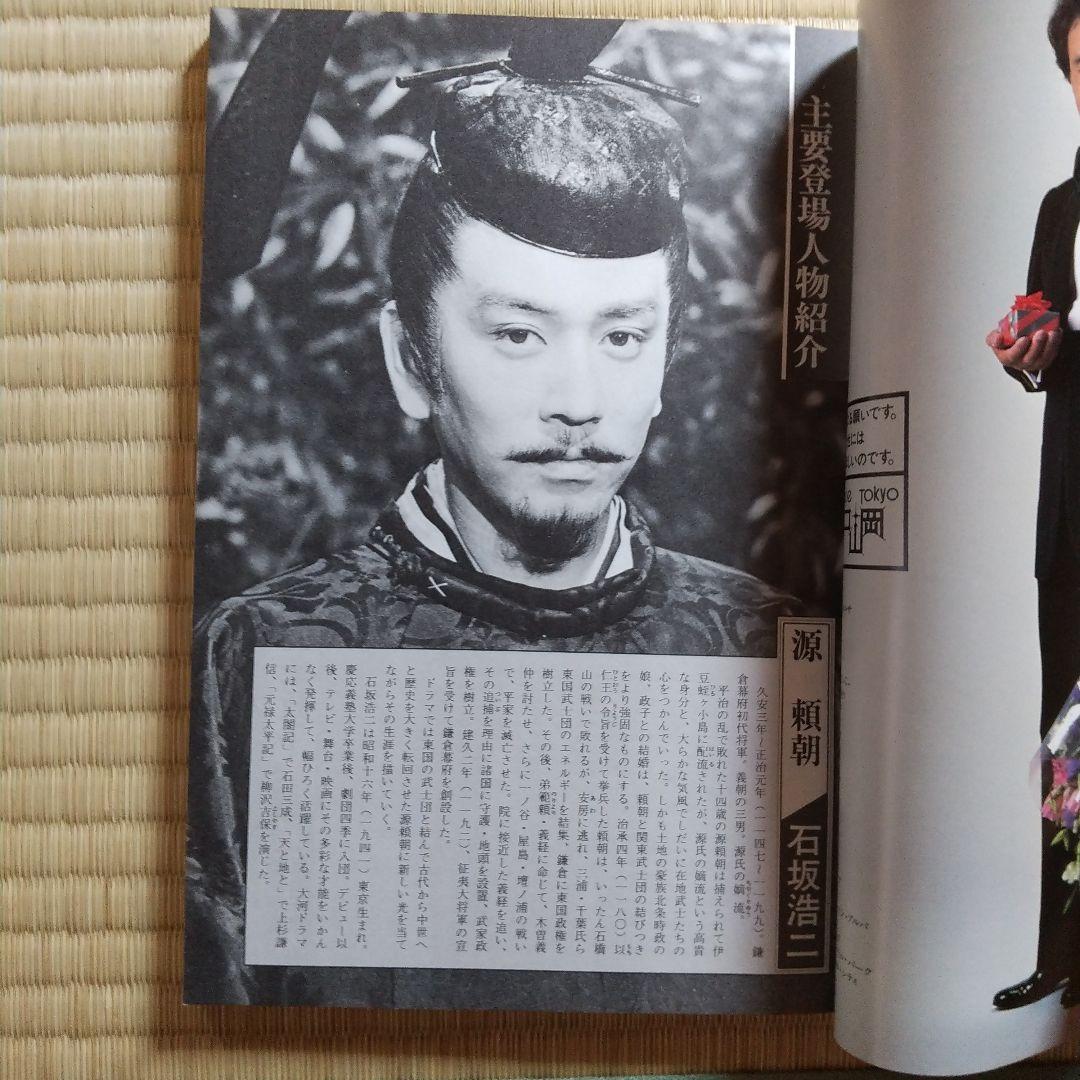 主要登場人物紹介
源 頼朝
石坂浩二
久安三年〜正治元年(一一四七〜一一九九)。鎌
倉幕府初代将軍。義朝の三男。源氏の嫡流。
平治の乱で敗れた十四歳の源頼朝は捕えられて伊
豆蛭ヶ小島に配流されたが、源氏の嫡流という高貴
な身分と、大らかな気風でしだいに在地武士たちの
心をつかんでいった。しかも土地の豪族北条時政の
娘、政子との結婚は、頼朝と関東武士団の結びつき
をより強固なものにする。治承四年(一一八〇)以
仁王の令旨を受けて挙兵した頼朝は、いったん石橋
山の戦いで敗れるが、安房に逃れ、三浦・千葉氏ら
東国武士団のエネルギーを結集、鎌倉に東国政権を
樹立した。その後、弟範頼・義経に命じて、木曽義
仲を討たせ、さらに一ノ谷・屋島・壇ノ浦の戦い
で、平家を滅亡させた。院に接近した義経を追い、
その追捕を理由に諸国に守護・地頭を設置、武家政
権を樹立。建久二年(一一九二)、征夷大将軍の宣
旨を受けて鎌倉幕府を創設した。
ドラマでは東国の武士団と結んで古代から中世へ
と歴史を大きく転回させた源頼朝に新しい光を当て
ながらその生涯を描いていく。
石坂浩二は昭和十六年(一九四一)東京生まれ。
慶応義塾大学卒業後、劇団四季に入団。デビュー以
後、テレビ・舞台・映画にその多彩な才能をいかん
なく発揮して、幅ひろく活躍している。大河ドラマ
には、「太閤記」で石田三成、「天と地と」で上杉謙
信、「元禄太平記」で柳沢吉保を演じた。
願いです。
には
しいのです。
TOKYO
岡